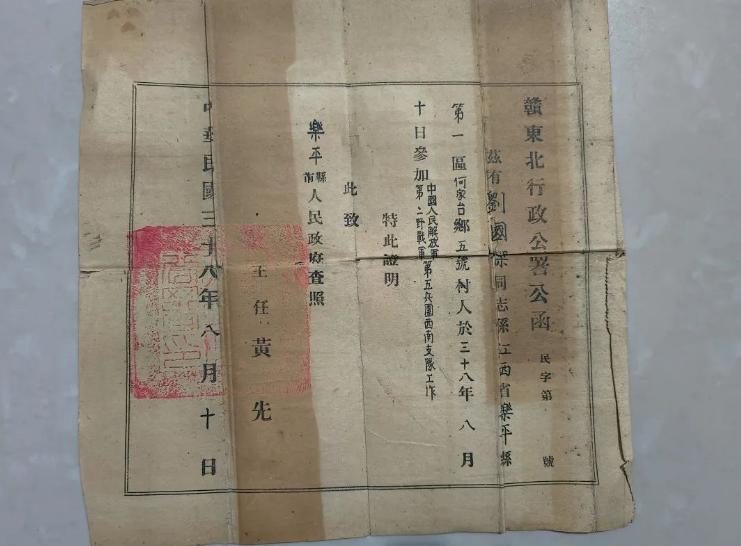 贛東北行政公署公函
民字第 號
茲有劉國保同志係江西省樂平縣
第一區何家台鄉五號村人於三十八年八月
十日參加中國人民解放軍第二野戰軍第五兵團西南支隊工作
特此證明
此致
樂平縣市人民政府查照
主任黃先
中華民國三十八年八月十日